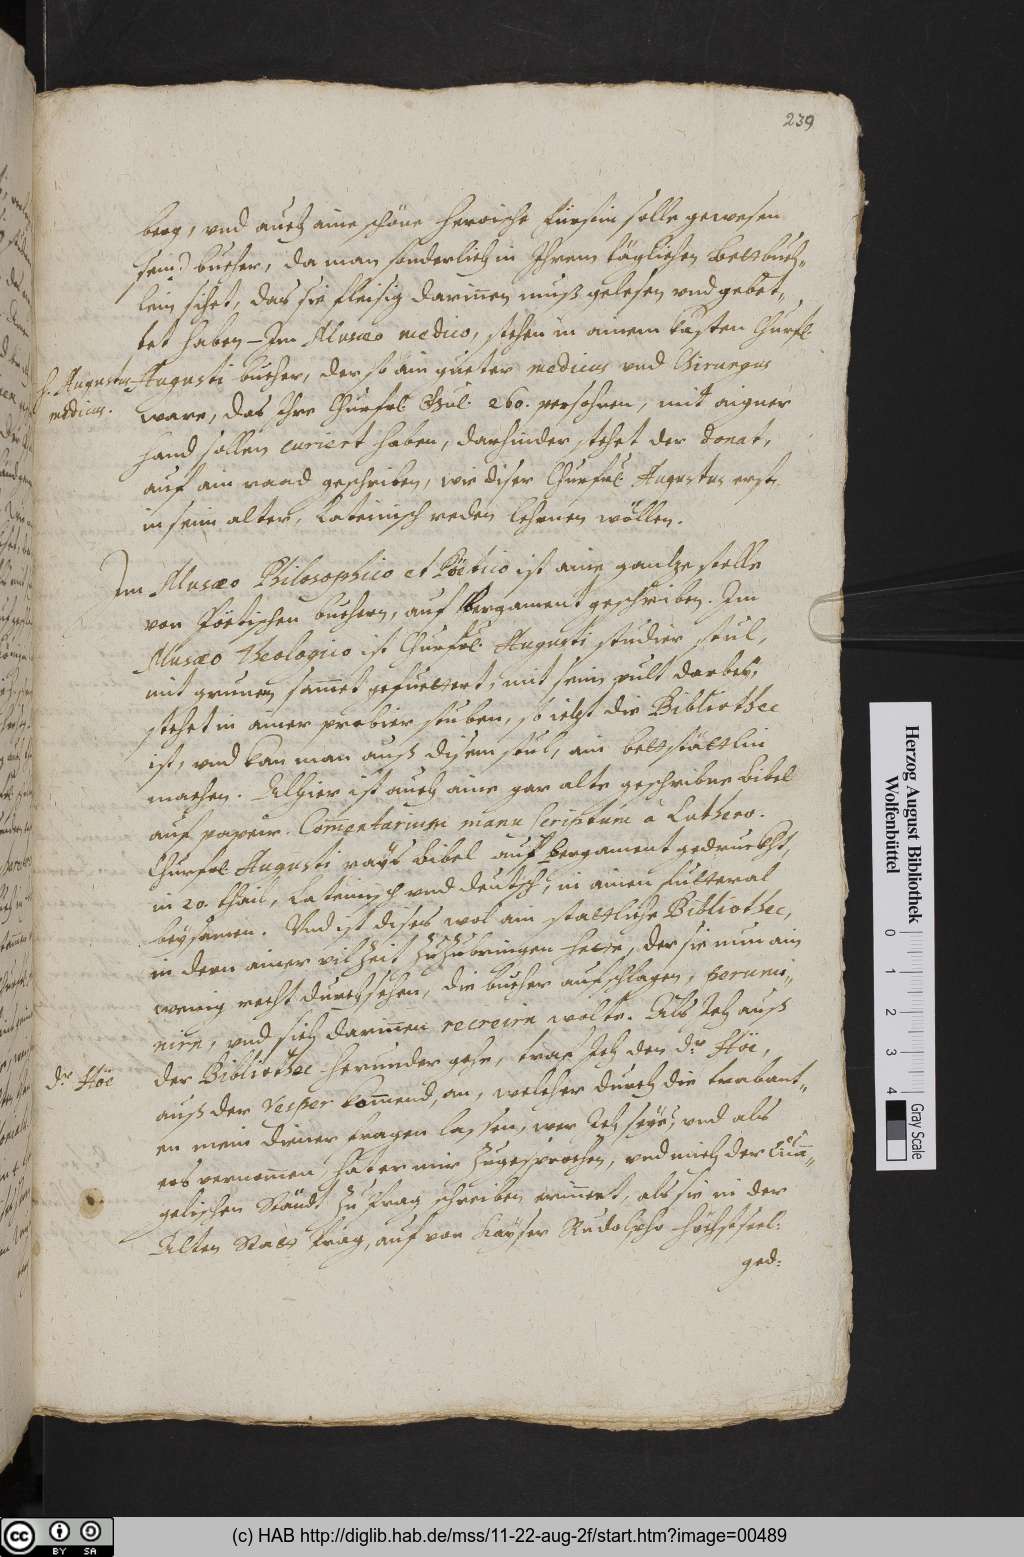 239
berg, vnd auch aine schöne heroische Fürstin solle gewesen
sein) bücher, da man sonderlich in Ihrem täglichen bettbüch„
lein sihet, das sie fleisig darinnen muß gelesen vnd gebet„
tet haben – Im Musæo medico, stehen in ainem kasten Churfl.
h. Augustus medicus.
Augusti bücher, der so ain gueter medicus vnd Chirurgus
ware, das Ihre Churfrl. 260. persohnen, mit aigner
hand sollen curiert haben, darhinder stehet der Donat,
auf ain raad geschriben, wie diser Churfrl. Augustus erst
in seim alter, Lateinisch reden lehrnen wöllen.
Im Musæo Philosophico et Pöetico ist aine gantze stelle
von Pöetischen büchern, auf Pergament geschriben. Im
Musæo Theologico ist Churfrl. Augusti studier stul,
mit grünem sammet gefüettert, mit seim pult darbey,
stehet in ainer probier stuben, so ietzt die Bibliothec
ist, vnd kan man auß disem stul, ain bettstättlin
machen. Alhier ist auch aine gar alte geschribne Bibel
auf papeir. Commentarium manu scriptum à Luthero.
Churfrl. Augusti Bibel auf Pergament gedruckht,
in 20. thail, Lateinisch vnd deutsch, in ainem futteral
beysamen. Vnd ist dises wol ain stattliche Bibliothec,
in dern ainer vil Zeit Zuzubringen hette, der sie nun ain
wenig recht durchsehen, die bücher aufschlagen, perami„
nirn, vnd sich darinnen recreirn wolte. Als Ich auß
Dr. Höe
der Bibliothec herunder gehe, traf Ich den Dr. Höe,
auß der Vesper komend, an, welcher durch die trabant„
en mein diener fragen lassen, wer Ich seye, vnd als
ers vernommen, hat er mir Zugesprochen, vnd mich der Eua„
gelischen Ständt zu Prag schreiben erinnert, als sie in der
Alten Statt Prag, auf von Kayser Rudolpho höchstseel:
ged:
Herzog August Bibliothek
Wolfenbüttel
0 1 2 3 4
Gray Scale
cc BY SA
(c) HAB http://diglib.hab.de/mss/11-22-aug-2f/start.htm?image=00489